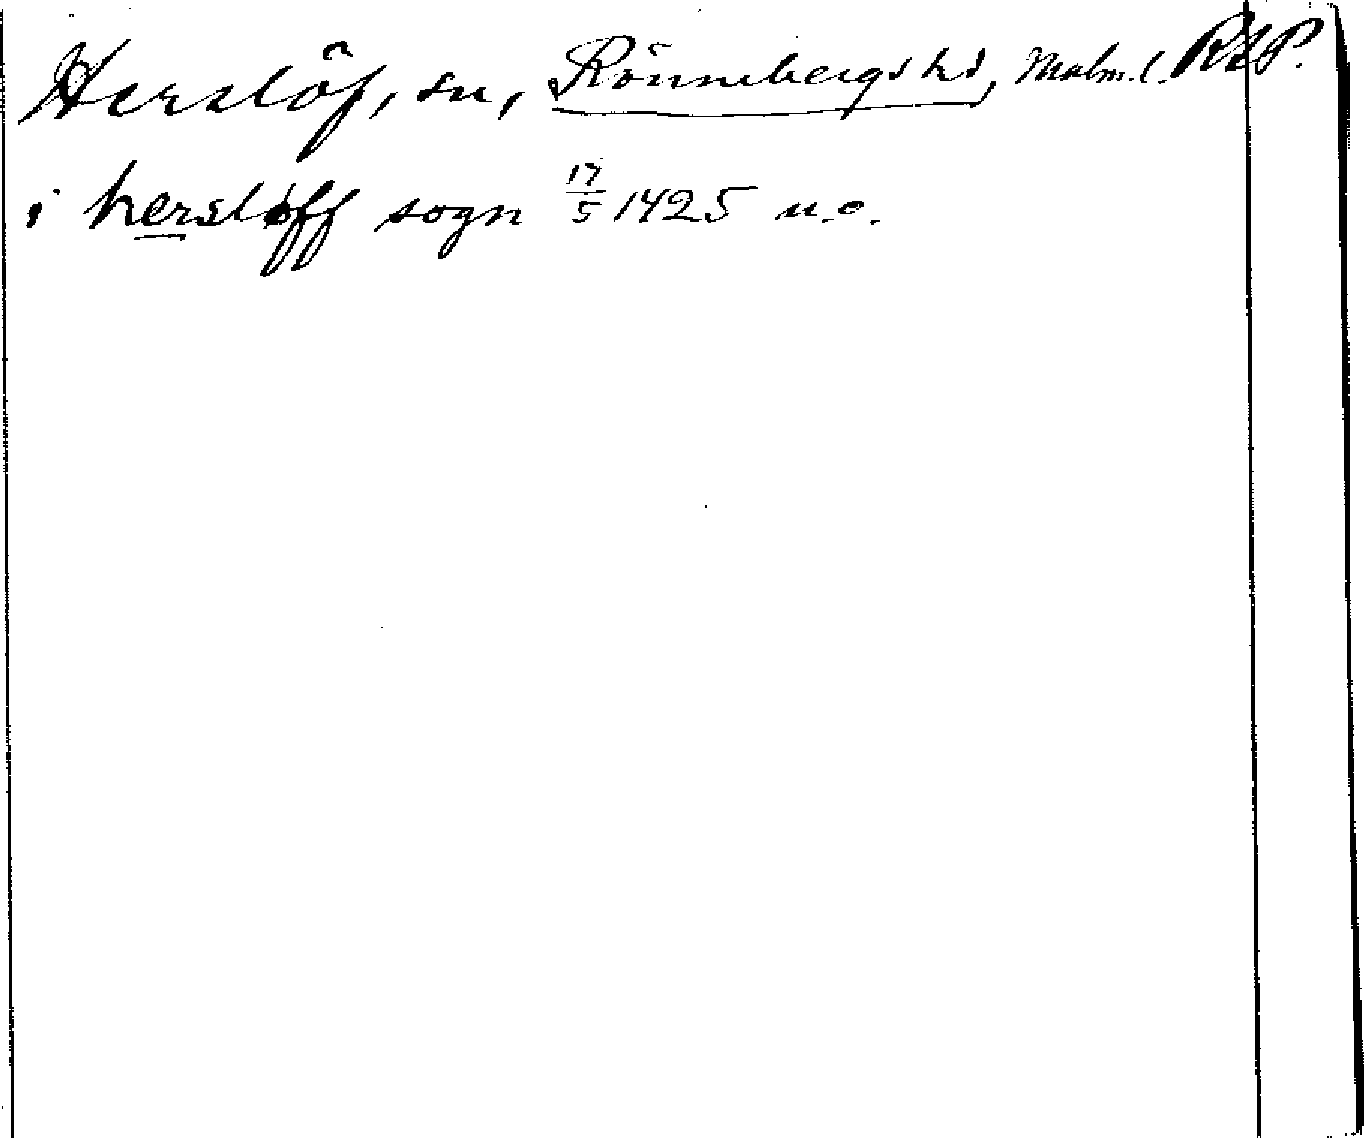 Herslöf, sn, Rönnebergs hd, Malm. l. RAP.
i hersløff sogn 17/5 1425 u.o.